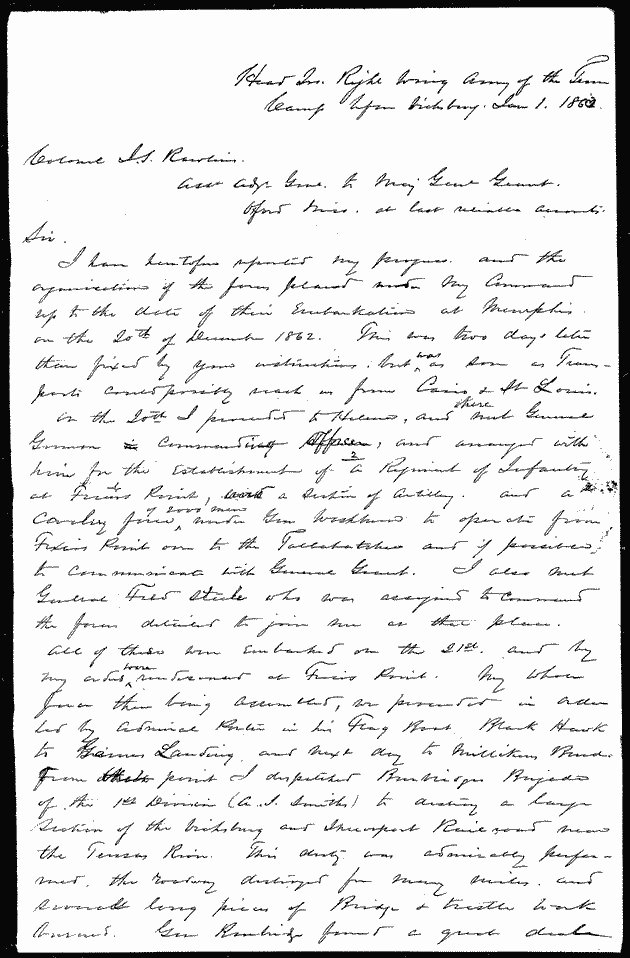 Head Qrs. Right Wing Army of the Tenn
Camp Upon Vicksburg. Jan 1. 1863.
Colonel J.S. Rawlins.
Asst Adjt Genl. to Maj Genl Grant.
Oxford Miss. at last reliable accounts.
Sir.
I have heretofore reported my progress. and the
organization of the forces placed under my Command
up to the date of their Embarkation at Memphis.
on the 20th of December 1862. This was two days later
than fixed by your instructions. but was as soon as Trans-
ports could possibly reach us from Cairo & St Louis.
on the 20th I proceeded to Helena, and there met General
Gorman commanding officer, and arranged with
him for the Establishment of a Regiment of Infantry
at Friars Point, a section of Artillery. and a
Cavalry force of 2000 men under Gen Washburn to operate from
Friars Point over to the Tallahatchee and if possible
to communicate with General Grant. I also met
General Fred Steele who was assigned to command
the forces detailed to join me at that place.
all of these were Embarked on the 21st. and by
my orders were rendezvoused at Friars Point. My whole
force then being assembled, we proceeded in order
led by Admiral Porter in his Flag Boat Black Hawk
to Gaines Landing and next day to Millikens Bend.
From that point I dispatched Burbridges Brigade
of the 1st Division (A.J. Smiths) to destroy a large
section of the Vicksburg and Shreveport Rail road near
the Tensas River. This duty was admirably perfor-
med. the roadway destroyed for many miles. and
several long pieces of Bridge & trestle work
burned. Gen Burbridge found a great deal